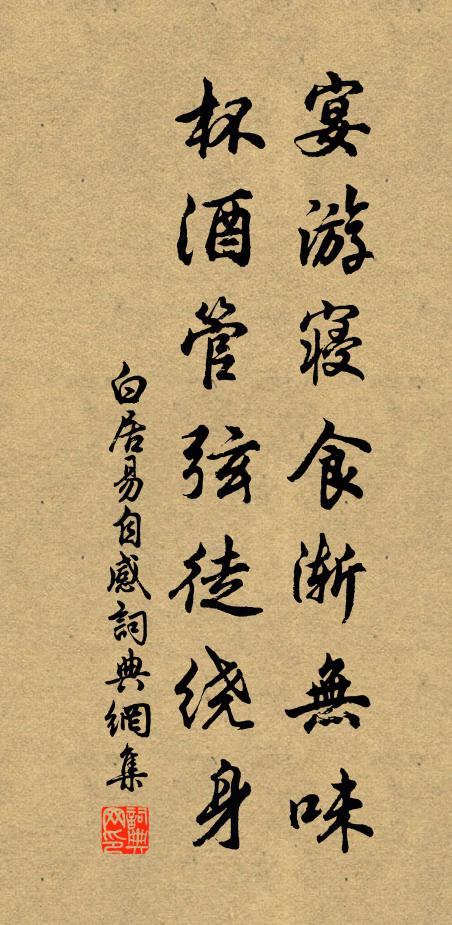 宴游寝食渐無味
杯酒管弦徒绕身
白居易自感詞典網集
詞典网印